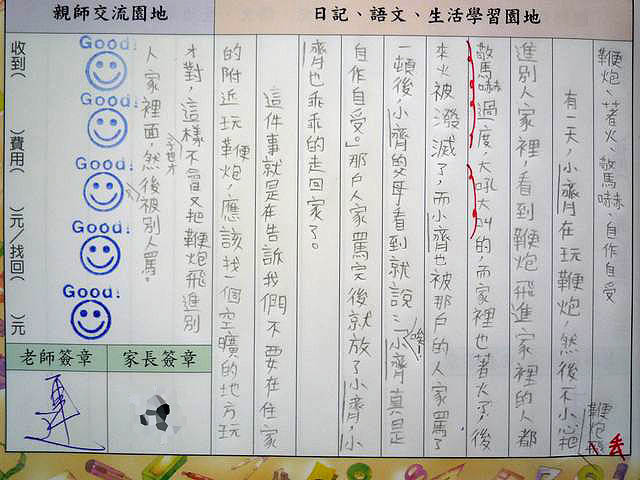 親師交流園地
日記、語文、生活學習園地
鞭炮、著火、驚嚇、自作自受
有一天，小濟在玩鞭炮，然後不小心把
鞭炮飛
丟
進別人家裡，看到鞭炮飛進家裡的人都
驚嚇過度，大吼大叫的，而家裡也著火了，後
來火被潑滅了，而小濟也被那戶的人家罵了
一頓後，小濟的父母看到就說：「小濟真是
唉！
自作自受。」那戶人家罵完後就放了小濟，小
濟也乖乖的走回家了。
這件事就是在告訴我們不要在住家
的附近玩鞭炮，應該找一個空曠的地方玩
才對，這樣不會又把鞭炮飛進別
人家裡面，然後被別人罵。
Good!
Good!
Good!
Good!
Good!
收到（　）費用（　）元／找回（　）元
老師簽章
家長簽章